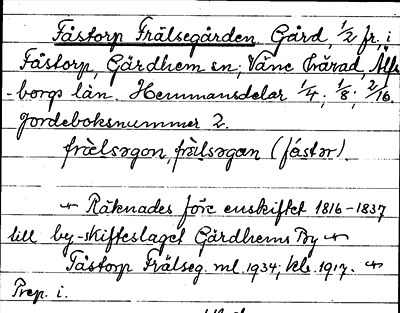 Fåstorp Frälsegården Gård, 1/2 fr. i
Fåstorp, Gärdhem sn; Väne härad, Älfs
-borgs län. Hemmansdelar 1/4; 1/8; 2/16.
Jordeboksnummer 2.
frälsegon, frälsegan (fåstor).
Räknades före enskiftet 1816-1837
till by-skifteslaget Gärdhems By
Fåstorp Frälseg. ml. 1934; kb. 1917.
Prep. i.